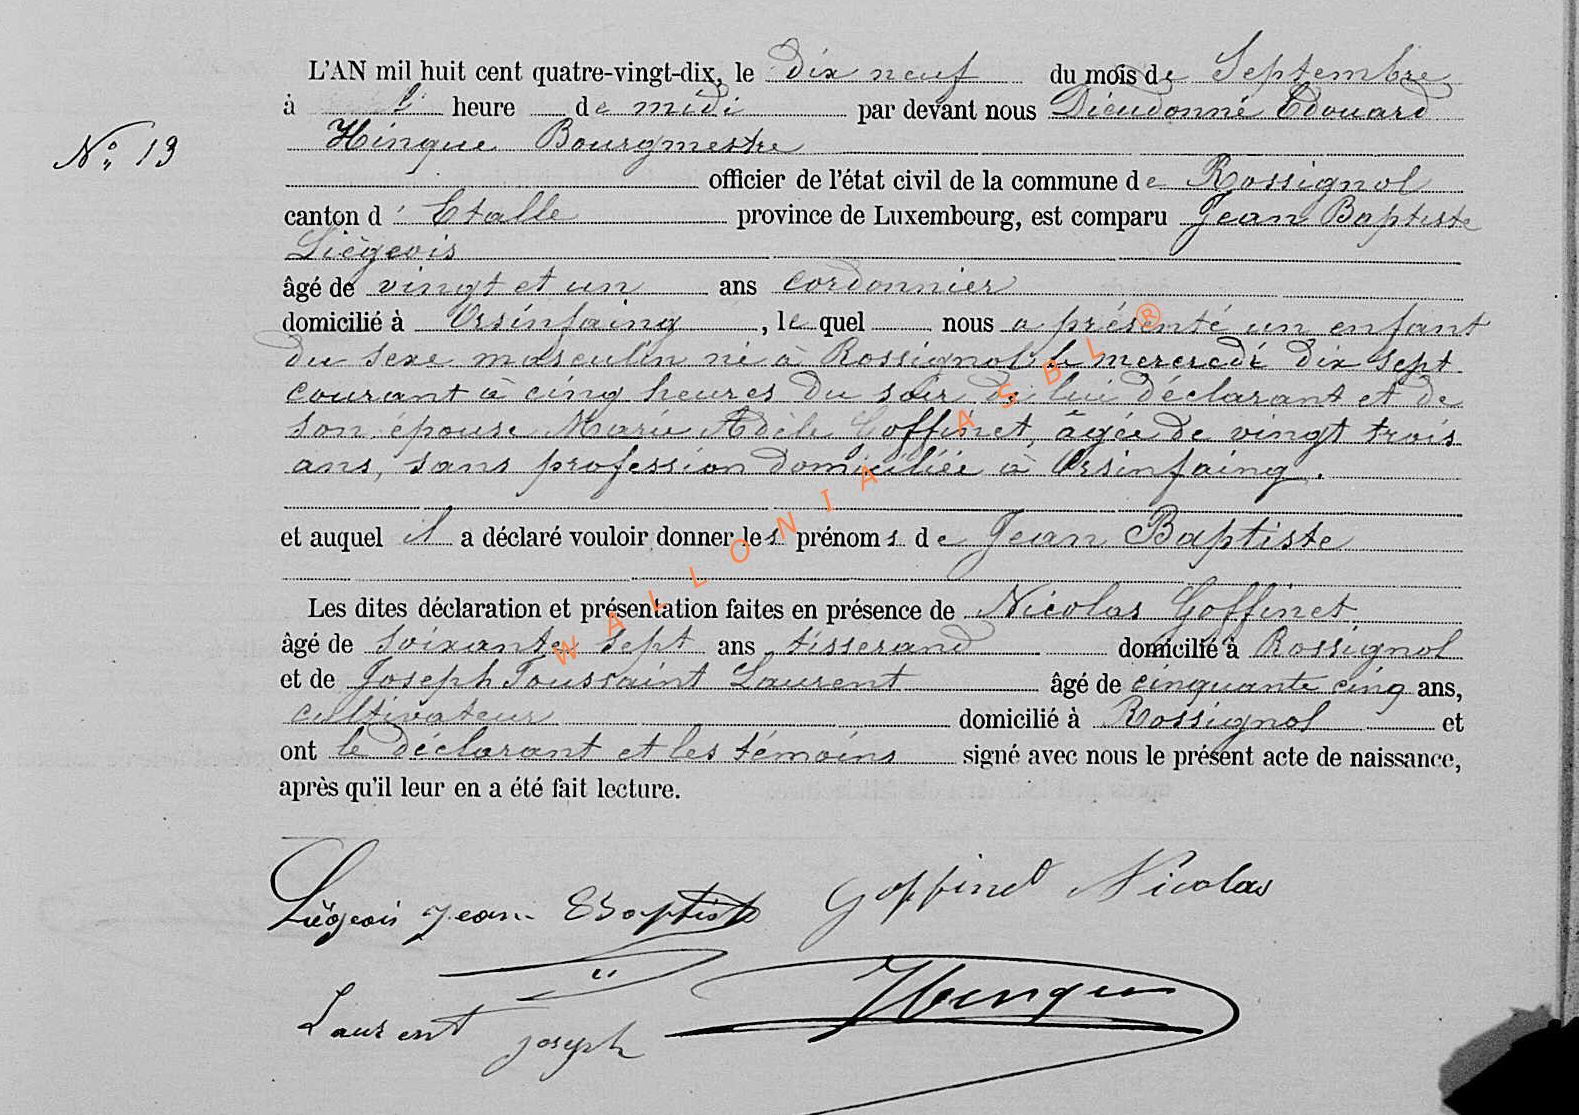 L'AN mil huit cent quatre-vingt-dix, le dix neuf du mois de Septembre
à l' heure de midi par devant nous Dieudonné Edouard
Nº 13
Hinque Bourgmestre
officier de l'état civil de la commune de Rossignol
canton d'Etalle province de Luxembourg, est comparu Jean Baptiste
Liégeois
âgé de vingt et un ans cordonnier
domicilié à Orsinfaing, le quel nous a présenté un enfant
du sexe masculin né à Rossignol le mercredi dix sept
courant à cinq heures du soir de lui déclarant et de
son épouse Marie Adèle Goffinet, âgée de vingt trois
ans, sans profession domiciliée à Orsinfaing.
et auquel il a déclaré vouloir donner les prénoms de Jean Baptiste
Les dites déclaration et présentation faites en présence de Nicolas Goffinet,
âgé de soixante sept ans, tisserand domicilié à Rossignol
et de Joseph Toussaint Laurent âgé de cinquante cinq ans,
cultivateur domicilié à Rossignol et
ont le déclarant et les témoins signé avec nous le présent acte de naissance,
après qu'il leur en a été fait lecture.
Liégeois Jean Baptiste Goffinet Nicolas
Laurent Joseph Hinque
WALLONIA ASBL ®